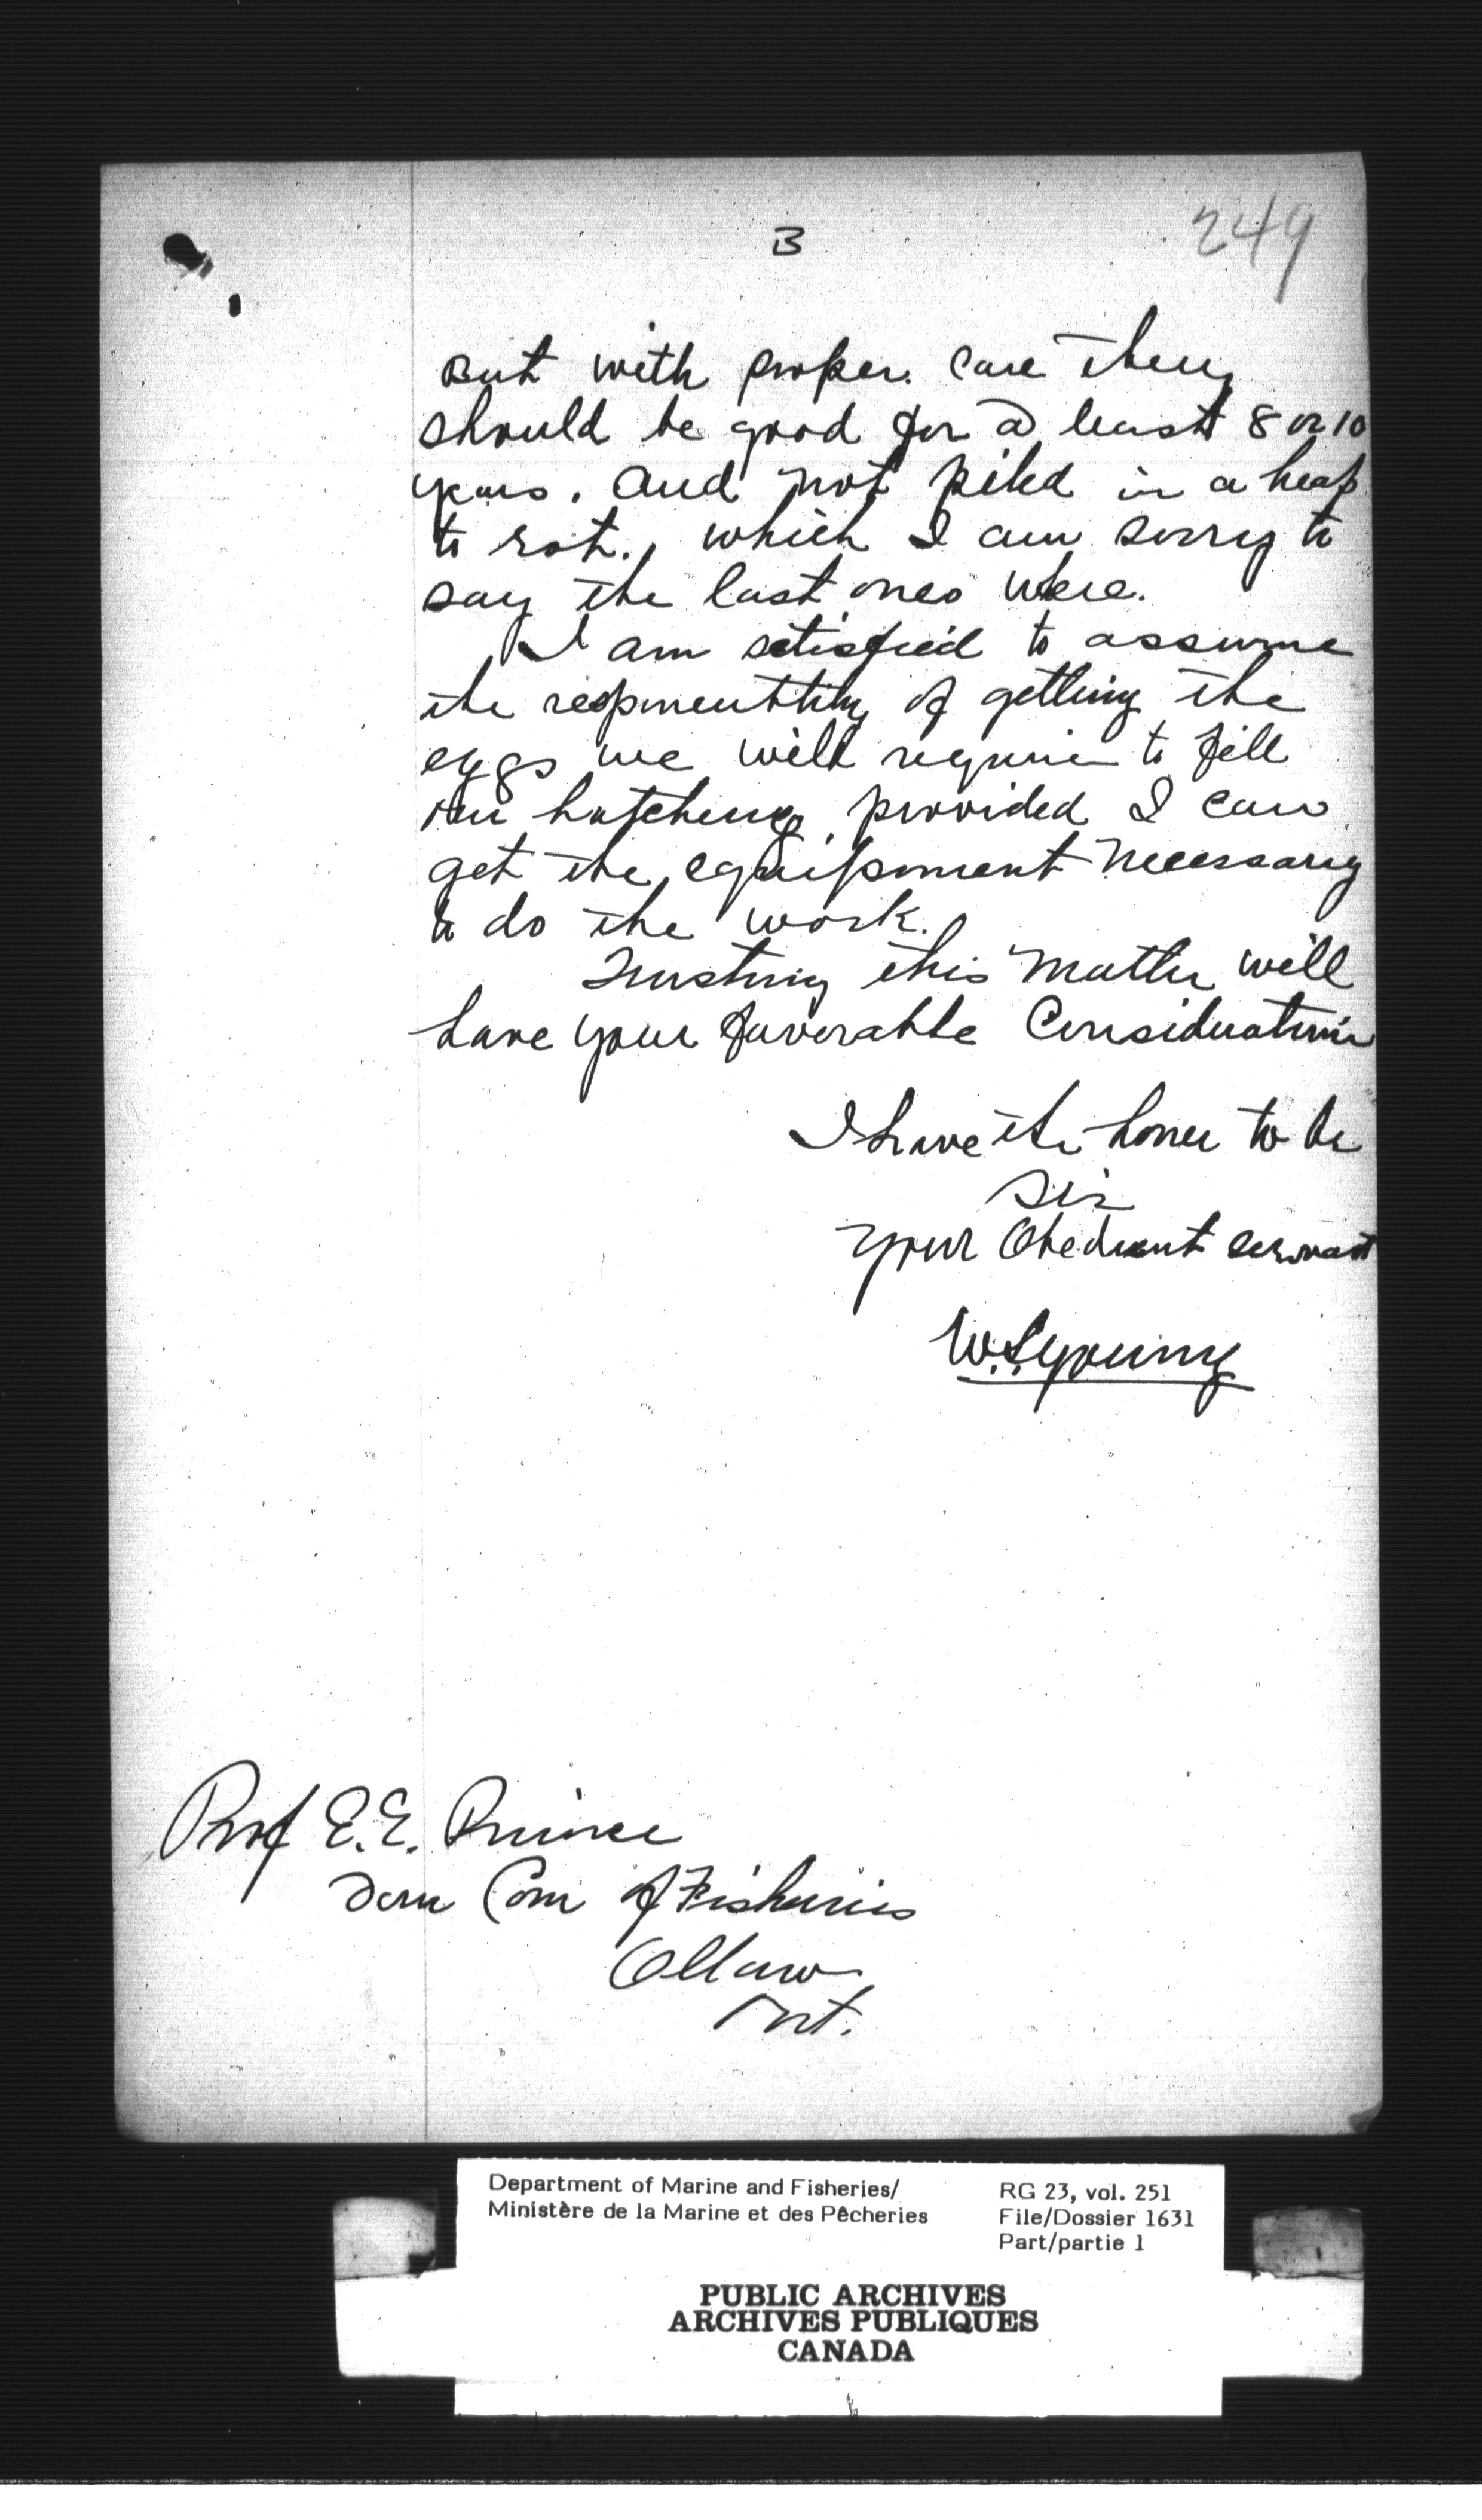 3
249
But with proper care they
should be good for a least 8 or 10
years. and not piled in a heap
to rot. which I am sorry to
say the last ones were.
I am satisfied to assume
the of getting the
eggs we will require to fill
our hatchery, provided I can
get the equipment necessary
to do the work.
Trusting this matter will
have your favorable Consideration
I have the honer to be
Sir
Your Obedient servant
W.S. Young
Prof E.E. Prince
Dom Com of Fisheries
Ottawa
Ont.
Department of Marine and Fisheries/
Ministère de la Marine et des Pêcheries
RG 23, vol. 251
File/Dossier 1631
Part/partie 1
PUBLIC ARCHIVES
ARCHIVES PUBLIQUES
CANADA